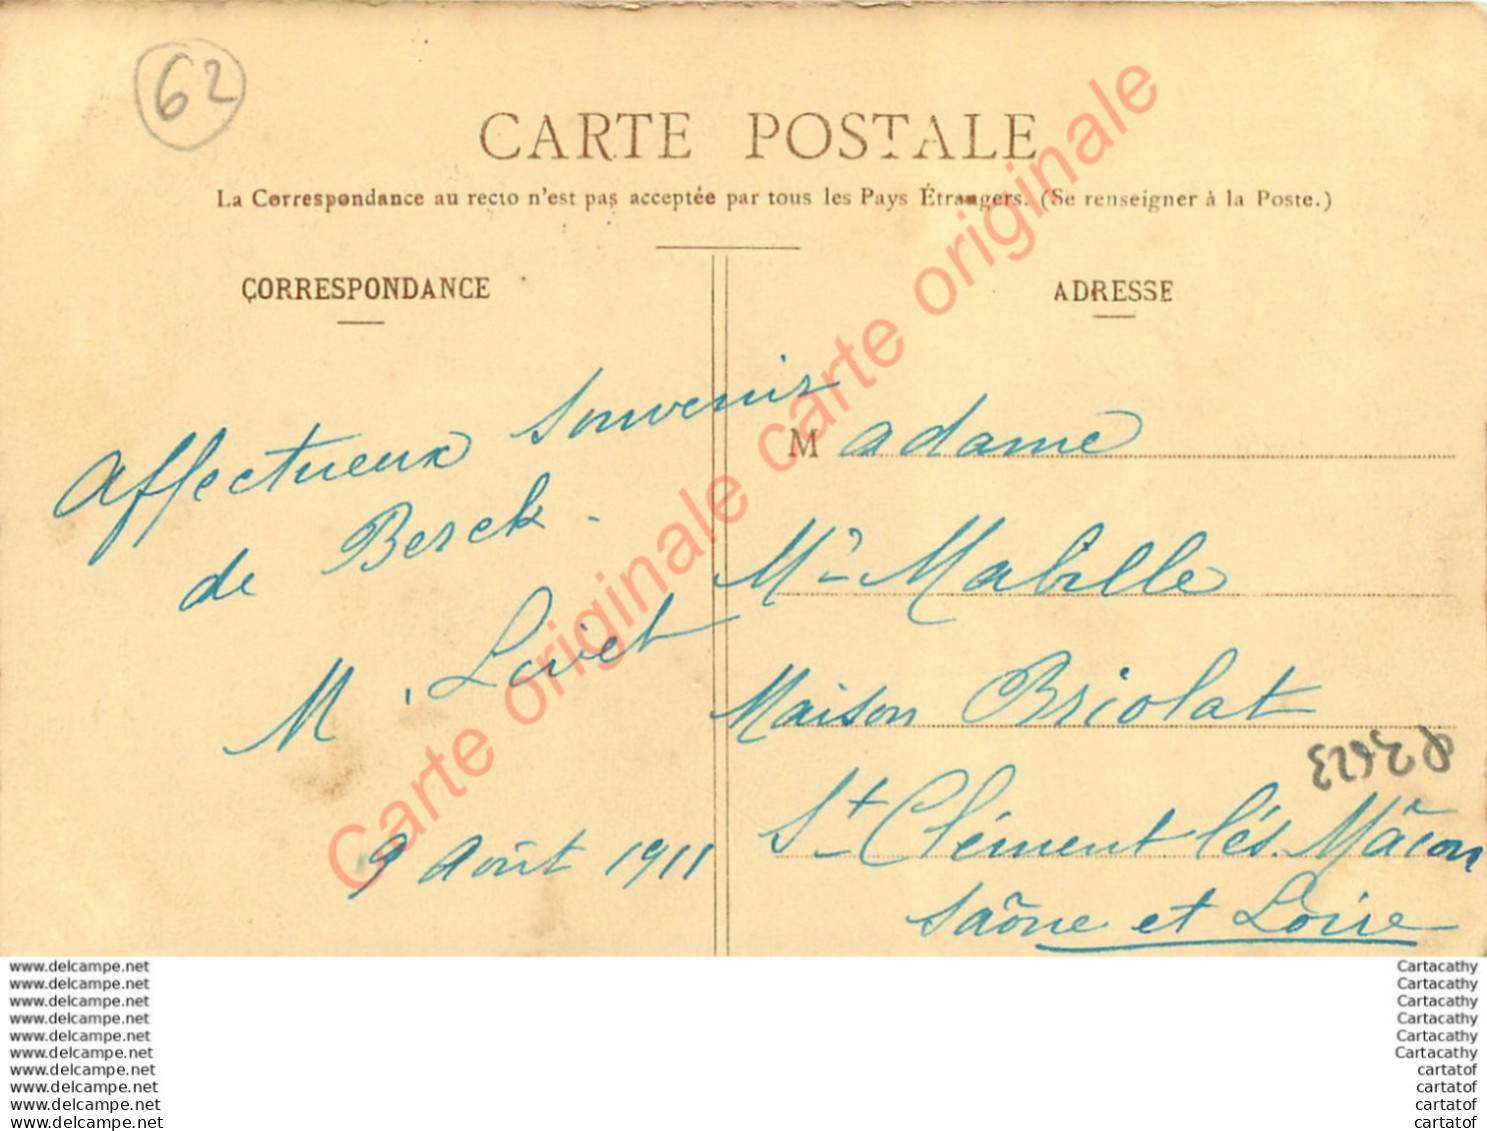 62
CARTE POSTALE
La Correspondance au recto n'est pas acceptée par tous les Pays Étrangers. (Se renseigner à la Poste.)
CORRESPONDANCE
Affectueux souvenir
de Berck -
M. Lavet
9 Août 1911
ADRESSE
Madame
Mabille
Maison Briolat
St Clément lés Mâcon
Saône et Loire
Carte originale carte originale
www.delcampe.net
www.delcampe.net
www.delcampe.net
www.delcampe.net
www.delcampe.net
www.delcampe.net
www.delcampe.net
www.delcampe.net
www.delcampe.net
www.delcampe.net
Cartacathy
Cartacathy
Cartacathy
Cartacathy
Cartacathy
Cartacathy
cartatof
cartatof
cartatof
cartatof